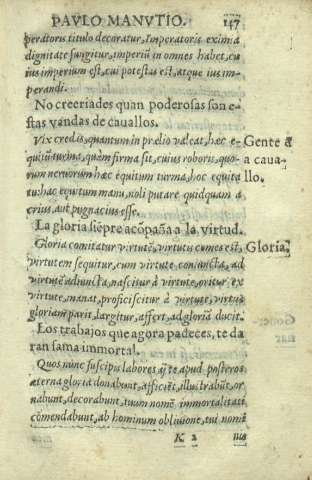 PAVLO MANVTIO. 147
peratoris titulo decoratur, Imperatoris eximia
dignitate fungitur, imperiũ in omnes habet, cu
ius imperium est, cui potestas est, atque ius im-
perandi.
No creeriades quan poderosas son e-
stas vandas de cauallos.
Vix credis, quantum in prælio valeat, hæc e-
quitũ turma, quàm firma sit, cuius roboris, quo-
rum neruorum hæc equitum turma, hoc equita
tu: hæc equitum manu, noli putare quidquam a
crius, aut pugnacius esse.
Gente á
caua-
llo.
La gloria siẽpre acõpaña a la virtud.
Gloria comitatur virtutẽ, virtutis comes est,
virtutem sequitur, cum virtute coniuncta, ad
virtutẽ adiuncta, nascitur à virtute, oritur ex
virtute, manat, proficiscitur à virtute, virtus
gloriam parit, largitur, affert, ad gloriã ducit.
Gloria.
Los trabajos que agora padeces, te da
ran fama immortal.
Quos nunc suscipis labores ij te apud posteros
æterna gloria donabunt, afficiẽt, illustrabũt, or
nabunt, decorabunt, tuum nomẽ immortalitati
cõmendabunt, ab hominum obliuione, tui nomĩ
K 2 nis